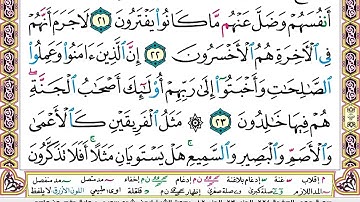 أَنفُسَهُمْ وَضَلَّ عَنْهُم مَّا كَانُوا۟ يَفْتَرُونَ ٢١ لَا جَرَمَ أَنَّهُمْ
فِى ٱلْءَاخِرَةِ هُمُ ٱلْأَخْسَرُونَ ٢٢ إِنَّ ٱلَّذِينَ ءَامَنُوا۟ وَعَمِلُوا۟
ٱلصَّـٰلِحَـٰتِ وَأَخْبَتُوٓا۟ إِلَىٰ رَبِّهِمْ أُو۟لَـٰٓئِكَ أَصْحَـٰبُ ٱلْجَنَّةِ ۖ
هُمْ فِيهَا خَـٰلِدُونَ ٢٣ مَثَلُ ٱلْفَرِيقَيْنِ كَٱلْأَعْمَىٰ
وَٱلْأَصَمِّ وَٱلْبَصِيرِ وَٱلسَّمِيعِ ۚ هَلْ يَسْتَوِيَانِ مَثَلًا ۚ أَفَلَا تَذَكَّرُونَ